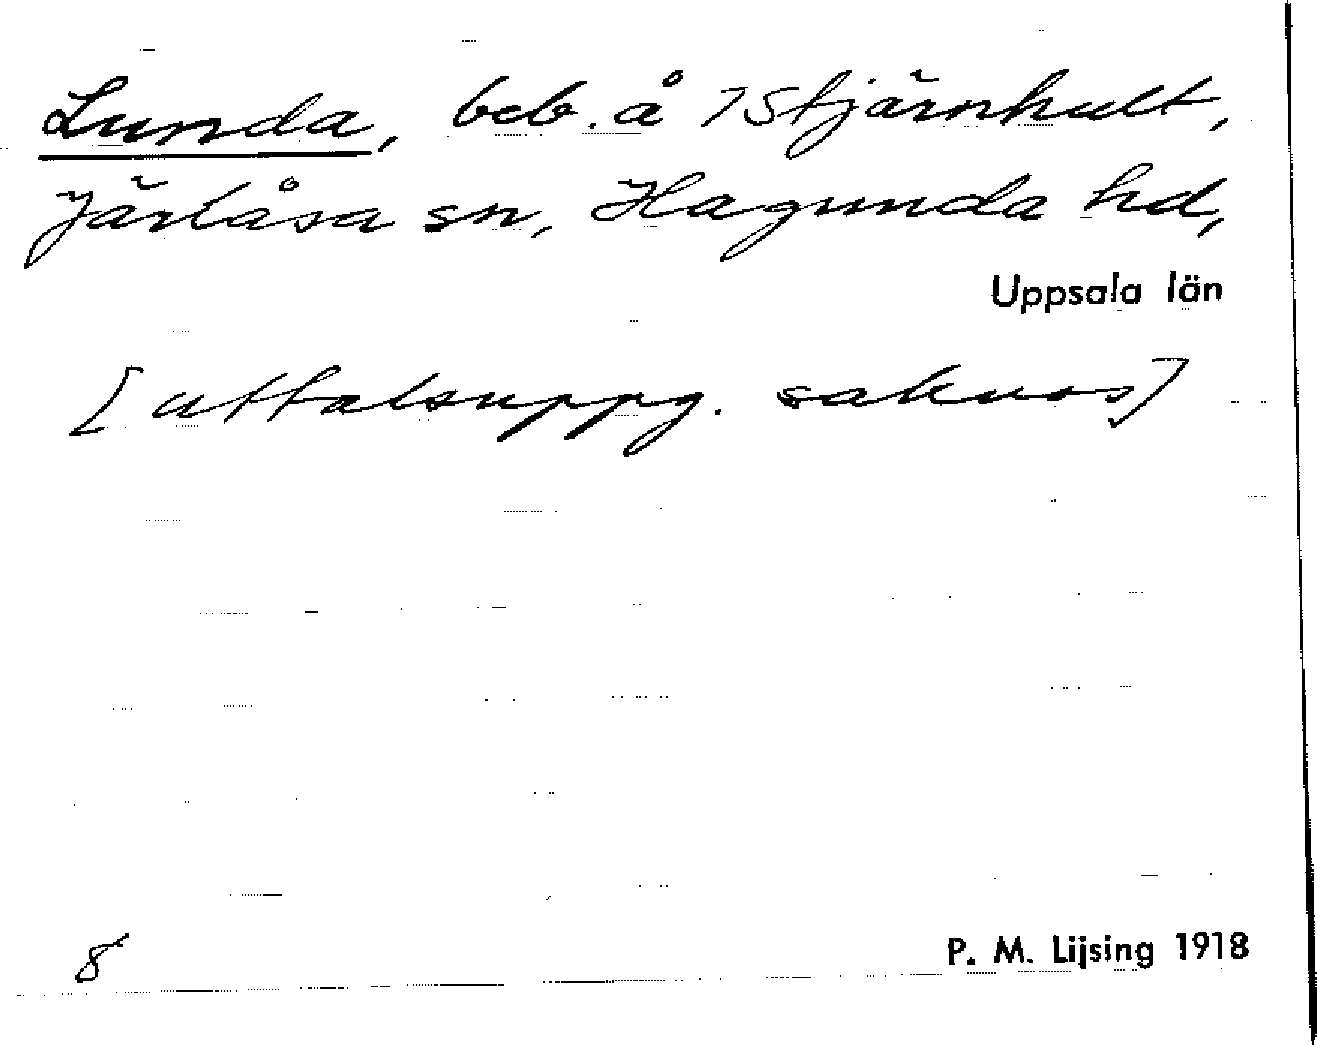 Lunda, beb. å 7 Stjärnhult,
Järlåsa sn, Hagunda hd,
Uppsala län
[uttalsuppg. saknas]
8
P. M. Lijsing 1918